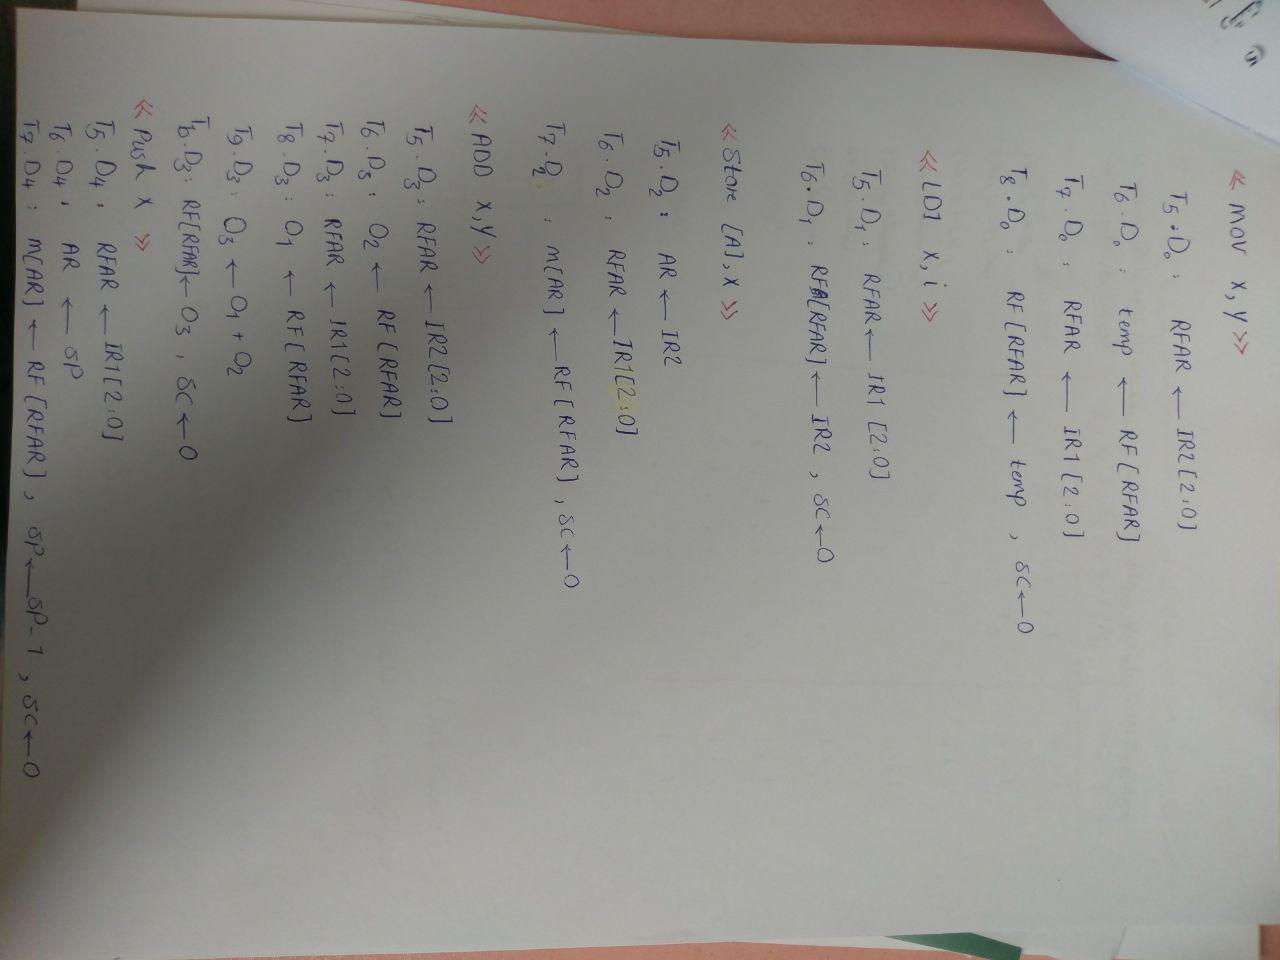 « MOV x, y »
T5 . D0 : RFAR ← IR2 [2:0]
T6 . D0 : temp ← RF [RFAR]
T7 . D0 : RFAR ← IR1 [2:0]
T8 . D0 : RF [RFAR] ← temp , SC ← 0
« LDI x, i »
T5 . D1 : RFAR ← IR1 [2:0]
T6 . D1 : RF[RFAR] ← IR2 , SC ← 0
« Store [A], x »
T5 . D2 : AR ← IR2
T6 . D2 : RFAR ← IR1[2:0]
T7 . D2 : M[AR] ← RF [RFAR] , SC ← 0
« ADD x, y »
T5 . D3 : RFAR ← IR2 [2:0]
T6 . D3 : O2 ← RF [RFAR]
T7 . D3 : RFAR ← IR1[2:0]
T8 . D3 : O1 ← RF [RFAR]
T9 . D3 : O3 ← O1 + O2
Tb . D3 : RF[RFAR] ← O3 , SC ← 0
« Push x »
T5 . D4 : RFAR ← IR1[2:0]
T6 . D4 : AR ← SP
T7 . D4 : M[AR] ← RF [RFAR] , SP ← SP - 1 , SC ← 0